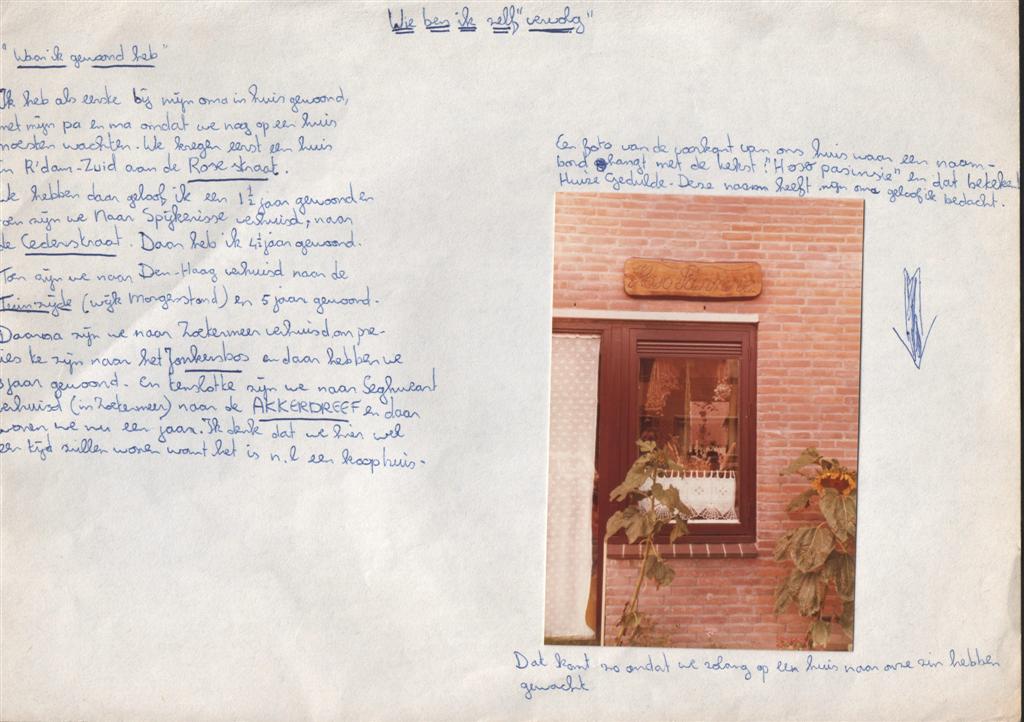 Wie ben ik zelf "vervolg"
"Waar ik gewoond heb"
Ik heb als eerste bij mijn oma in huis gewoond,
met mijn pa en ma omdat we nog op een huis
moesten wachten. We kregen eerst een huis
in R'dam-Zuid aan de Rosestraat.
We hebben daar geloof ik een 1½ jaar gewoond en
toen zijn we Naar Spijkenisse verhuisd, naar
de Cederstraat. Daar heb ik 4½ jaar gewoond.
Toen zijn we naar Den-Haag verhuisd naar de
Tuin-zijde (wijk Morgenstond) en 5 jaar gewoond.
Daarna zijn we naar Zoetermeer verhuisd om pre-
cies te zijn naar het Jonkerbos en daar hebben we
jaar gewoond. En tenslotte zijn we naar Seghwaert
verhuisd (in Zoetermeer) naar de AKKERDREEF en daar
wonen we nu een jaar. Ik denk dat we hier wel
een tijd zullen wonen want het is n.l een koophuis.
Een foto van de voorkant van ons huis waar een naam-
bord hangt met de tekst: "Hoso pasinsie" en dat betekent
Huize Gedulde. Deze naam heeft mijn oma geloof ik bedacht.
Dat komt zo omdat we zolang op een huis naar onze zin hebben
gewacht